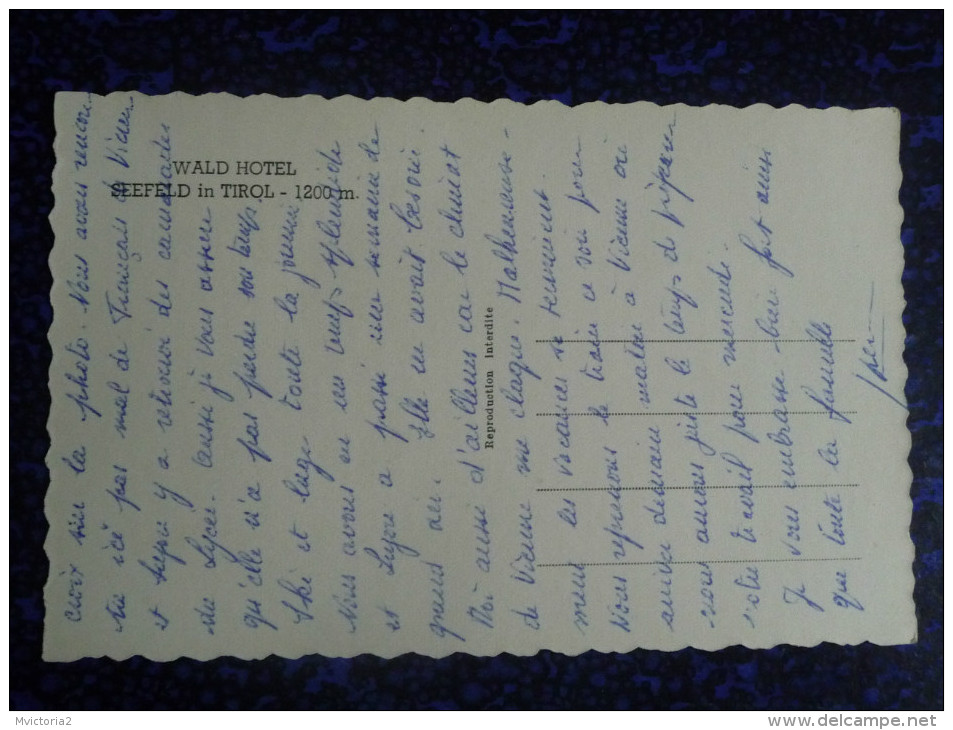 WALD HOTEL
SEEFELD in TIROL - 1200 m.
Reproduction Interdite
croix sur la photo. Nous avons rencon-
tré ici pas mal de Français de Vienne
et y a retrouvé des camarades
du Lycée. aussi je vous assure
qu'elle n'a pas perdu son temps.
Ski et luge toute la journée
Nous avons eu un temps splendide
et a passé une semaine de
grand air. Elle en avait besoin
Moi aussi d'ailleurs car le climat
de Vienne me claque. Malheureuse-
ment les vacances se terminent.
Nous reprenons le train ce soir pour
arriver demain matin à Vienne où
nous aurons juste le temps de préparer
notre travail pour mercredi.
Je vous embrasse bien fort ainsi
que toute la famille
Mvictoria2
delcampe.net